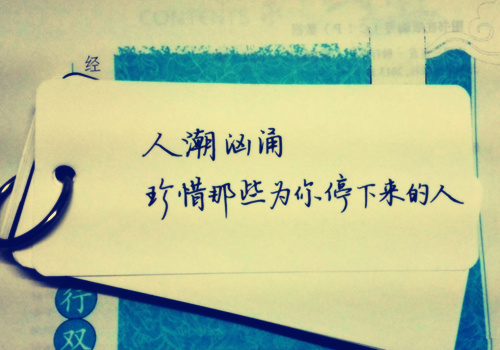 CONTENTS
经
人潮汹涌
珍惜那些为你停下来的人
行
双